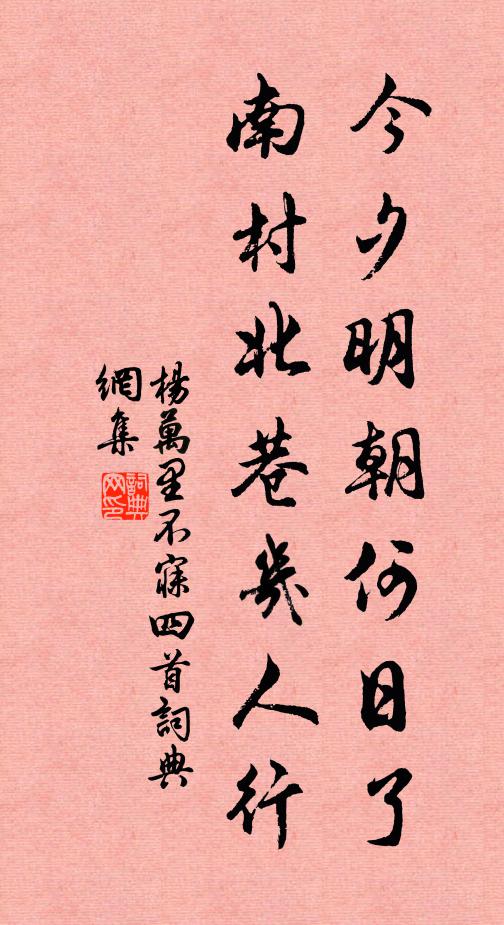 今夕明朝何日了
南村北巷幾人行
楊萬里不寐四首詞典
網集
詞典
网印